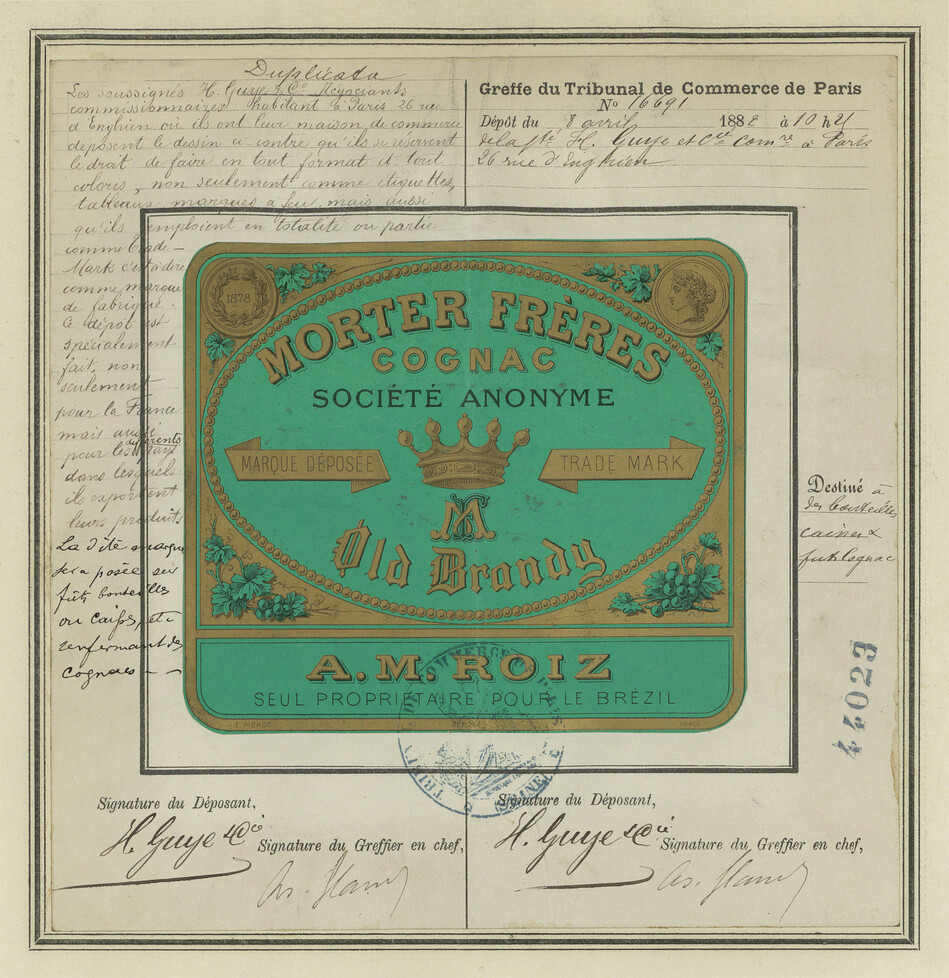 Duplicata
Les soussignés H. Guye & Cie Négociants
commissionnaires habitant à Paris 26 rue
d'Enghien où ils ont leur maison de commerce
déposent le dessin ci contre qu'ils se réservent
le droit de faire en tout format et tout
coloris, non seulement comme étiquettes,
tableaux, marques à feu, mais aussi
qu'ils emploient en totalité ou partie
comme Trade-
Mark c'est à dire
comme marque
de fabrique.
Ce dépôt est
spécialement
fait, non
seulement
pour la France
mais aussi
pour les différents pays
dans lesquels
ils exportent
leurs produits
La dite marque
sera posée sur
fûts bouteilles
ou caisses, etc
renfermant des
cognacs - -
Greffe du Tribunal de Commerce de Paris
No 16691
Dépôt du 8 avril 1882 à 10 h 21
de la sté H. Guye et Cie Comre à Paris
26 rue d'Enghien
1878
MORTER FRÈRES
COGNAC
SOCIÉTÉ ANONYME
MARQUE DÉPOSÉE
TRADE MARK
M
Old Brandy
A.M. ROIZ
SEUL PROPRIÉTAIRE POUR LE BRÉZIL
E. PICHOT
DÉPOSÉ
PARIS
Destiné à
des bouteilles
caisses &
futs Cognac
44023
Signature du Déposant,
H. Guye & Cie
Signature du Greffier en chef,
Signature du Déposant,
H. Guye & Cie
Signature du Greffier en chef,